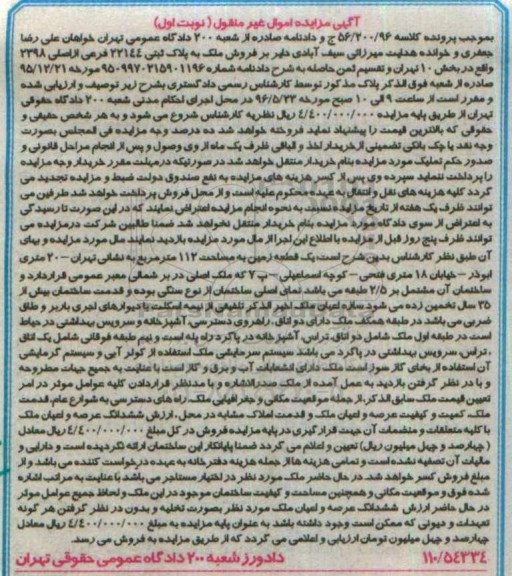 آگهی مزایده اموال غیر منقول ( نوبت اول )
بموجب پرونده کلاسه ۵۶/۲۰۰/۹۶ ج و دادنامه صادره از شعبه ۲۰۰ دادگاه عمومی تهران خواهان علی رضا
جعفری و خوانده هدایت میرزائی سیف آبادی دایر بر فروش ملک به پلاک ثبتی ۲۲۱۴۴ فرعی ازاصلی ۲۳۹۸
واقع در بخش ۱۰ تهران و تقسیم ثمن حاصله به شرح دادنامه شماره ۹۵۰۹۹۷۰۲۱۵۹۰۱۱۹۶ مورخه ۹۵/۱۲/۲۱
صادره از شعبه فوق الذکر پلاک مذکور توسط کارشناس رسمی دادگستری بشرح زیر توصیف و ارزیابی شده
و مقرر است از ساعت ۹ الی ۱۰ صبح مورخه ۹۶/۵/۲۳ در محل اجرای احکام مدنی شعبه ۲۰۰ دادگاه حقوقی
تهران از طریق پایه مزایده ۴/۴۰۰/۰۰۰/۰۰۰ ریال نظریه کارشناس شروع می شود و به هر شخص حقیقی و
حقوقی که بالاترین قیمت را پیشنهاد نماید فروخته خواهد شد ده درصد وجه مزایده فی المجلس بصورت
وجه نقد یا چک بانکی تضمینی از خریدار اخذ و الباقی ظرف یک ماه از وی وصول و پس از انجام مراحل قانونی و
صدور حکم تملیک مورد مزایده بنام خریدار منتقل خواهد شد در صورتیکه درمهلت مقرر خریدار وجه مزایده
را پرداخت ننماید سپرده وی پس از کسر هزینه های مزایده به نفع صندوق دولت ضبط و مزایده تجدید می
گردد کلیه هزینه های نقل و انتقال به عهده محکوم علیه است و از محل فروش پرداخت خواهد شد طرفین می
توانند ظرف یک هفته از تاریخ مزایده نسبت به نحوه انجام مزایده اعتراض نمایند که در این صورت تا رسیدگی
به اعتراض از سوی دادگاه مورد مزایده بنام خریدار منتقل نخواهد شد ضمنا طالبین شرکت درمزایده می
توانند ظرف پنج روز قبل از مزایده با اطلاع این اجرا از مال مورد مزایده بازدید نمایند مال مورد مزایده و بهای
آن طبق نظر کارشناس بدین شرح است: یک قطعه زمین به مساحت ۱۱۲ مترمربع به نشانی تهران – ۲۰ متری
ابوذر – خیابان ۱۸ متری فتحی – کوچه اسماعیلی – پ ۲ که ملک اصلی در بر شمالی معبر عمومی قراردارد و
ساختمان آن مشتمل بر ۲/۵ طبقه می باشد نمای اصلی ساختمان از نوع سنگی بوده و قدمت ساختمان بیش از
۳۵ سال تخمین زده می شود سازه اعیان ملک اخیر الذکر تلفیقی از نیمه اسکلت با دیوارهای آجری باربر و طاق
ضربی می باشد در طبقه همکف ملک دارای دو اتاق ، راهروی دسترسی، آشپزخانه و سرویس بهداشتی در حیاط
است در طبقه اول ملک شامل دو اتاق، تراس، آشپزخانه در پاگرد راه پله است و نیم طبقه فوقانی شامل یک اتاق
، تراس، سرویس بهداشتی در پاگرد می باشد سیستم سرمایشی ملک استفاده از کولر آبی و سیستم گرمایشی
آن استفاده از بخاری گاز سوز است ملک دارای انشعابات آب و برق و گاز است با عنایت به جمیع جهات مطروحه
و با در نظر گرفتن بازدید به عمل آمده از ملک صدرالاشاره و با مدنظر قراردادن کلیه عوامل موثر در امر
تعیین قیمت ملک سابق الذکر، از جمله موقعیت مکانی و جغرافیایی ملک، راه های دسترسی به شوارع عام، قدمت
ملک، کمیت و کیفیت عرصه و اعیان ملک و قدمت املاک مشابه در محل ، ارزش ششدانگ عرصه و اعیان ملک
با کلیه متعلقات و منضمات آن جهت قرار گیری در پایه مزایده فروش در کل مبلغ ۴/۴۰۰/۰۰۰/۰۰۰ ریال معادل
( چهارصد و چهل میلیون ریال) تعیین و اعلام می گردد ضمنا پایانکار این ساختمان ارائه نگردیده است و دارایی و
مالیات آن تصفیه نشده است و تمامی هزینه ها از جمله هزینه دفترخانه به عهده درخواست کننده می باشد و از
مبلغ فروش کسر خواهد شد. در حال حاضر ملک مورد نظر در اختیار مستاجر می باشد با عنایت به مراتب اشاره
شده فوق و موقعیت مکانی و همچنین مساحت و کیفیت ساختمان موجود در این ملک و لحاظ جمیع عوامل موثر
در حال حاضر ارزش ششدانگ عرصه و اعیان ملک مورد نظر بصورت تخلیه و بدون در نظر گرفتن هر گونه
تعهدات و دیونی که ممکن است وجود داشته باشد به عنوان پایه مزایده به مبلغ ۴/۴۰۰/۰۰۰/۰۰۰ ریال معادل
چهارصد و چهل میلیون تومان ارزیابی و اعلامی می گردد که از طریق مزایده به فروش می رسد.
۱۱۰/۵۴۳۳۴ دادورز شعبه ۲۰۰ دادگاه عمومی حقوقی تهران